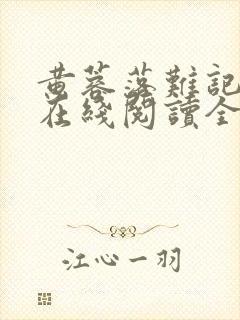 黄蓉落難記
在綫閱讀全
江心一羽